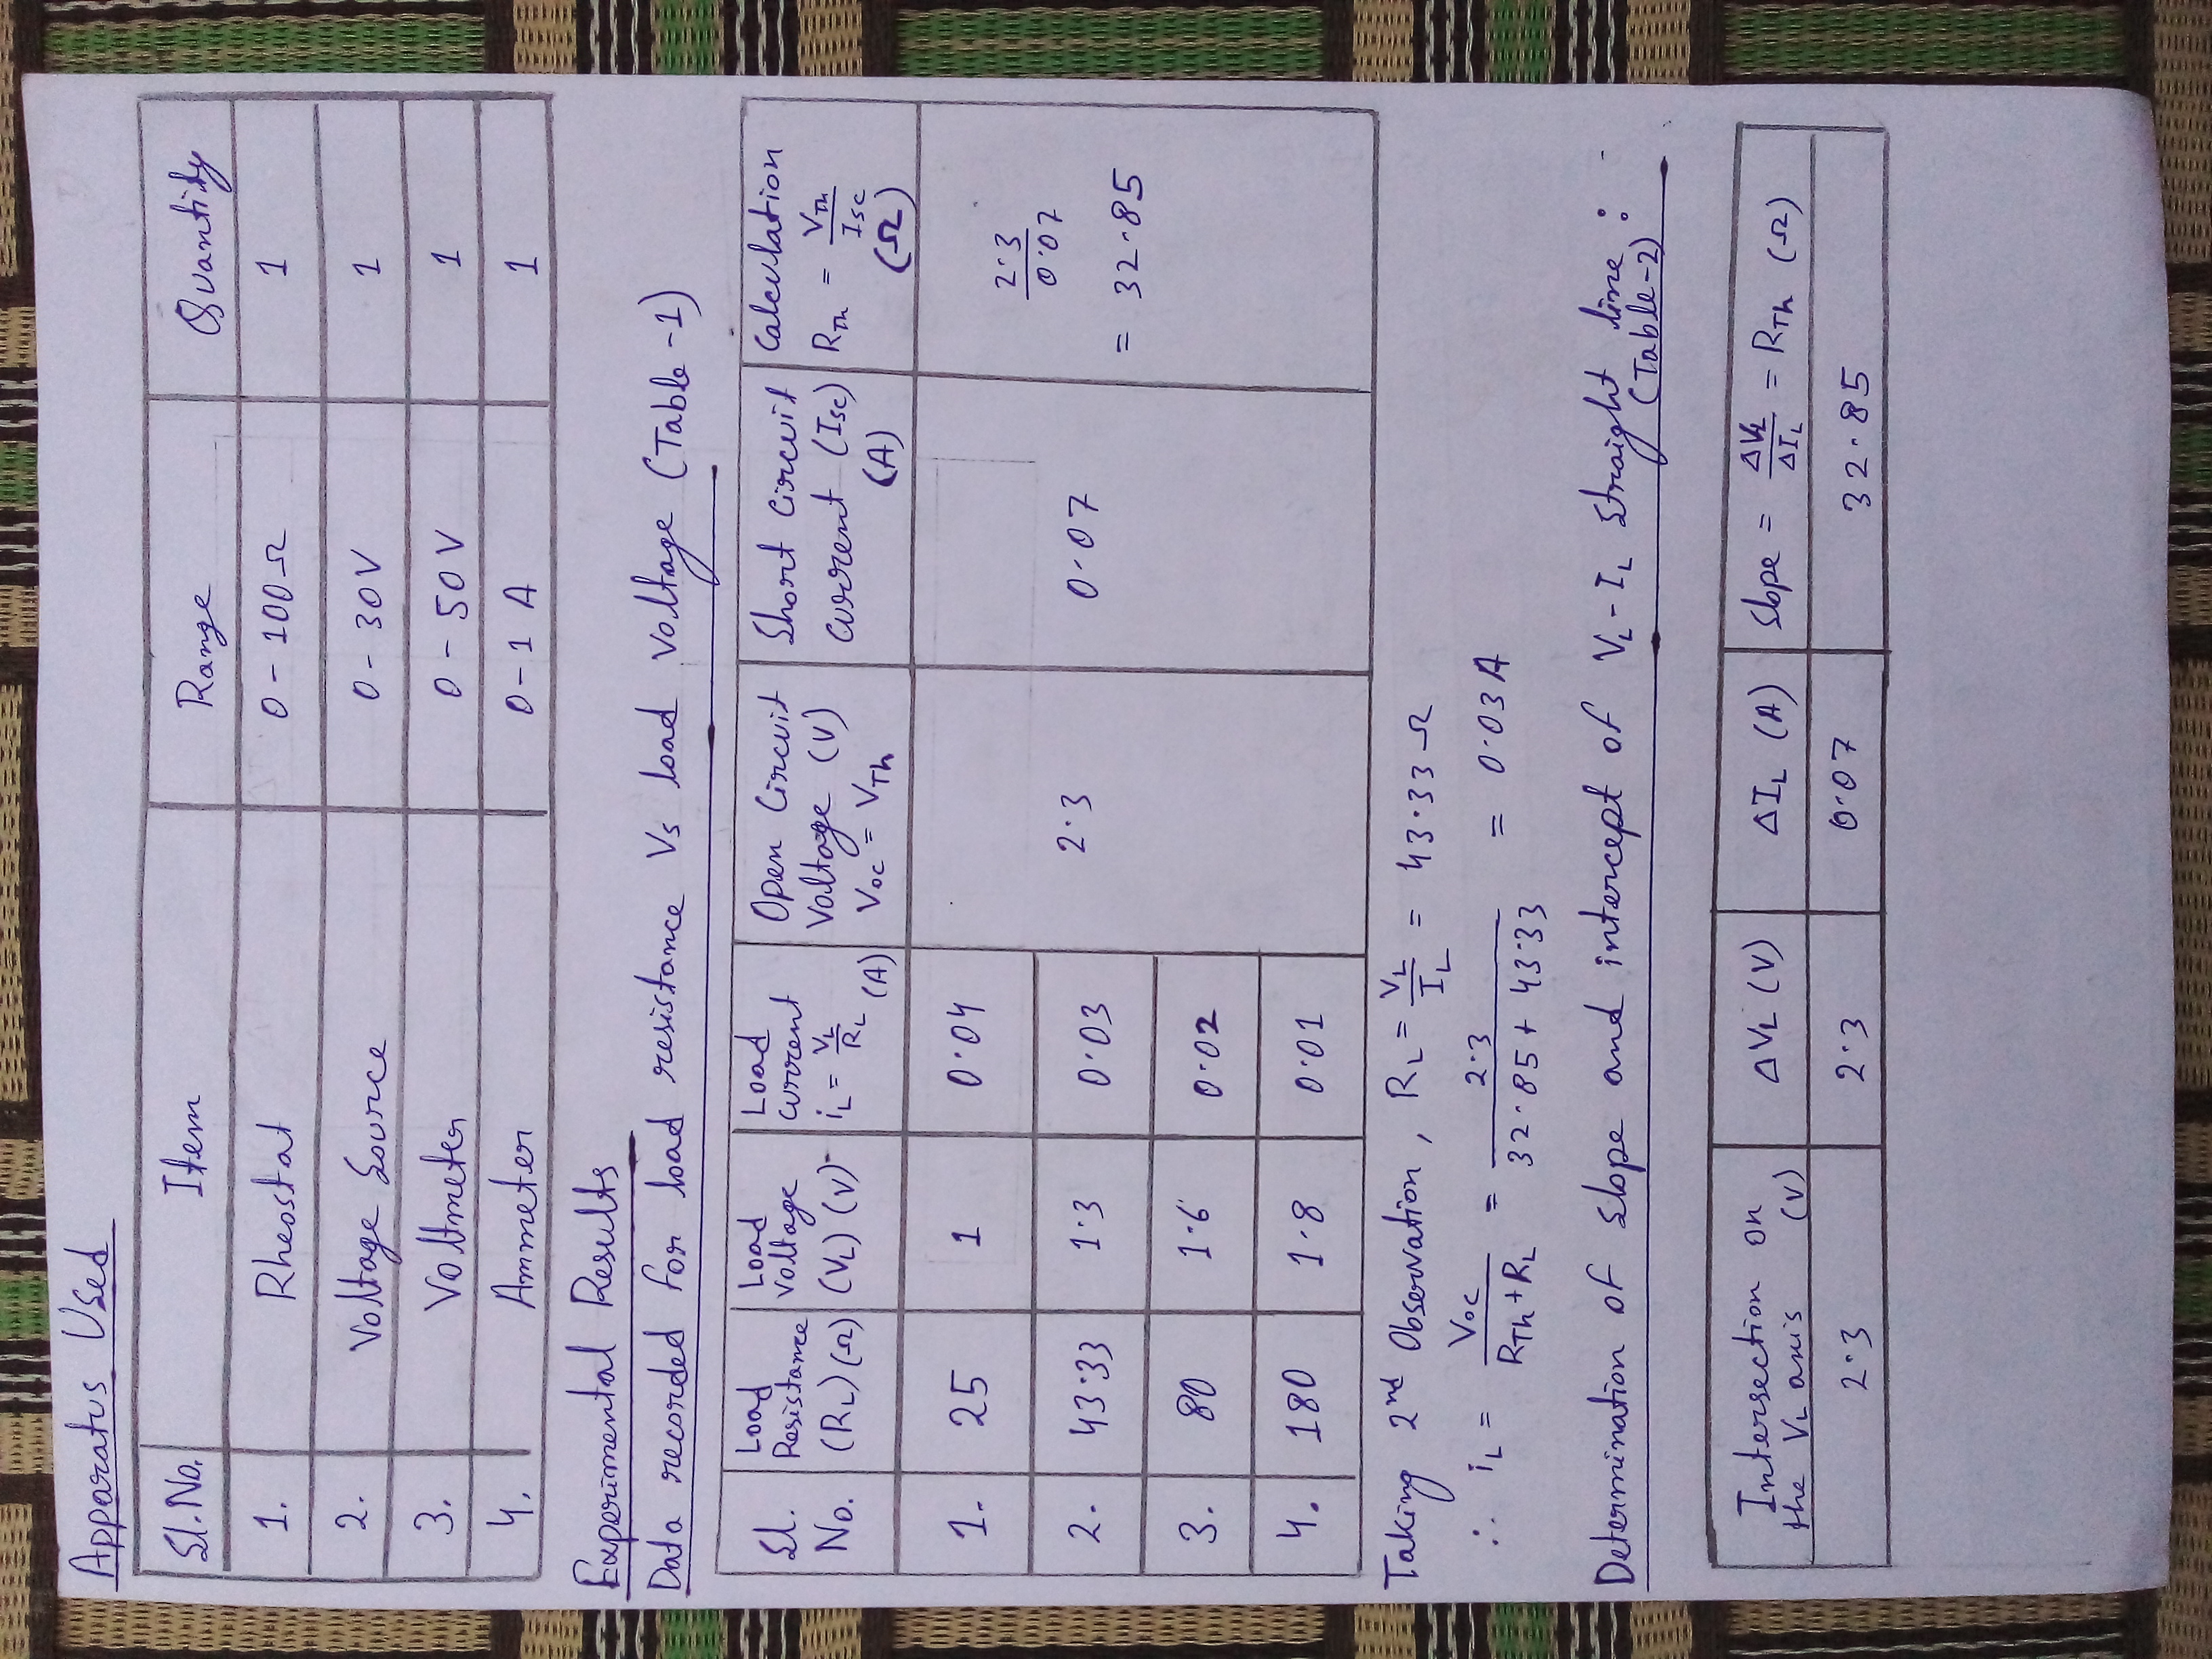 Apparatus Used
Sl. No. Item Range Quantity
1. Rheostat 0 - 100 Ω 1
2. Voltage Source 0 - 30 V 1
3. Voltmeter 0 - 50 V 1
4. Ammeter 0 - 1 A 1
Experimental Results
Data recorded for load resistance Vs load voltage (Table -1)
Sl. No. Load Resistance (RL) (Ω) Load voltage (VL) (V) Load current iL = VL/RL (A) Open Circuit Voltage (V) Voc = VTh Short circuit current (Isc) (A) Calculation RTh = VTh/Isc (Ω)
1. 25 1 0.04
2. 43.33 1.3 0.03 2.3 0.07 2.3/0.07 = 32.85
3. 80 1.6 0.02
4. 180 1.8 0.01
Taking 2nd Observation, RL = VL/IL = 43.33 Ω
∴ iL = Voc/(RTh + RL) = 2.3/(32.85 + 43.33) = 0.03 A
Determination of slope and intercept of VL - IL straight line :
(Table-2)
Intersection on the VL axis (V) ΔVL (V) ΔIL (A) Slope = ΔVL/ΔIL = RTh (Ω)
2.3 2.3 0.07 32.85